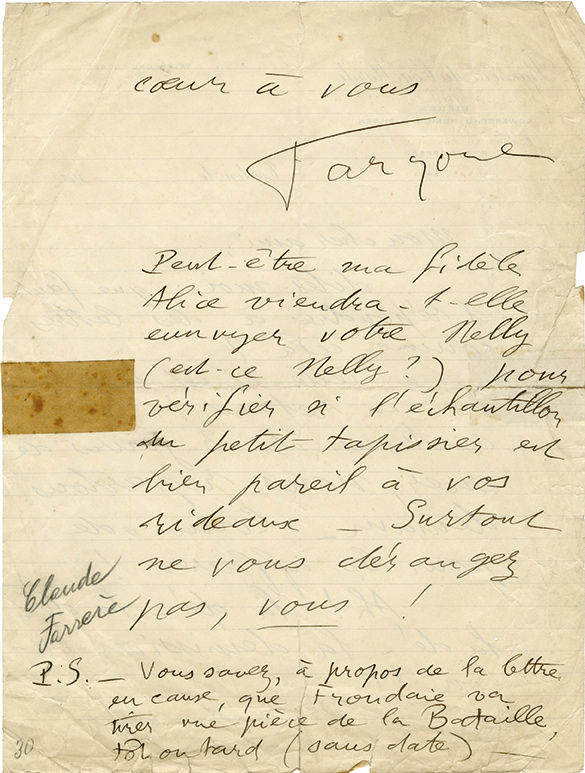 cœur à vous
Fargone
Peut-être ma fidèle
Alice viendra-t-elle
ennuyer votre Nelly
(est-ce Nelly?) pour
vérifier si l'échantillon
du petit tapissier est
bien pareil à vos
rideaux — Surtout
ne vous dérangez
pas, vous !
Claude
Farrère
P.S. — Vous savez, à propos de la lettre
en cause, que Frondaie va
tirer une pièce de la Bataille,
(sans date) —
30